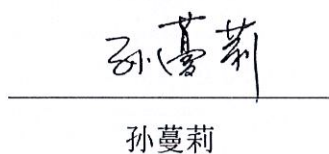 孙蔓莉
孙蔓莉